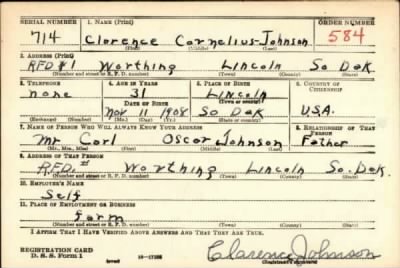 SERIAL NUMBER 1. NAME (Print) ORDER NUMBER
714 Clarence Cornelius Johnson 584
(First) (Middle) (Last)
2. ADDRESS (Print)
RFD #1 Worthing Lincoln So Dak
(Number and street or R. F. D. number) (Town) (County) (State)
3. TELEPHONE 4. AGE IN YEARS 5. PLACE OF BIRTH 6. COUNTRY OF CITIZENSHIP
none 31 Lincoln
DATE OF BIRTH (Town or county)
Nov 11 1908 So Dak U.S.A.
(Exchange) (Number) (Mo.) (Day) (Yr.) (State or country)
7. NAME OF PERSON WHO WILL ALWAYS KNOW YOUR ADDRESS 8. RELATIONSHIP OF THAT PERSON
Mr. Carl Oscar Johnson Father
(Mr., Mrs., Miss) (First) (Middle) (Last)
9. ADDRESS OF THAT PERSON
R.F.D. # Worthing Lincoln So. Dak.
(Number and street or R. F. D. number) (Town) (County) (State)
10. EMPLOYER'S NAME
Self
11. PLACE OF EMPLOYMENT OR BUSINESS
farm
(Number and street or R. F. D. number) (Town) (County) (State)
I AFFIRM THAT I HAVE VERIFIED ABOVE ANSWERS AND THAT THEY ARE TRUE.
REGISTRATION CARD
D. S. S. Form 1 Clarence Johnson
(Registrant's signature)